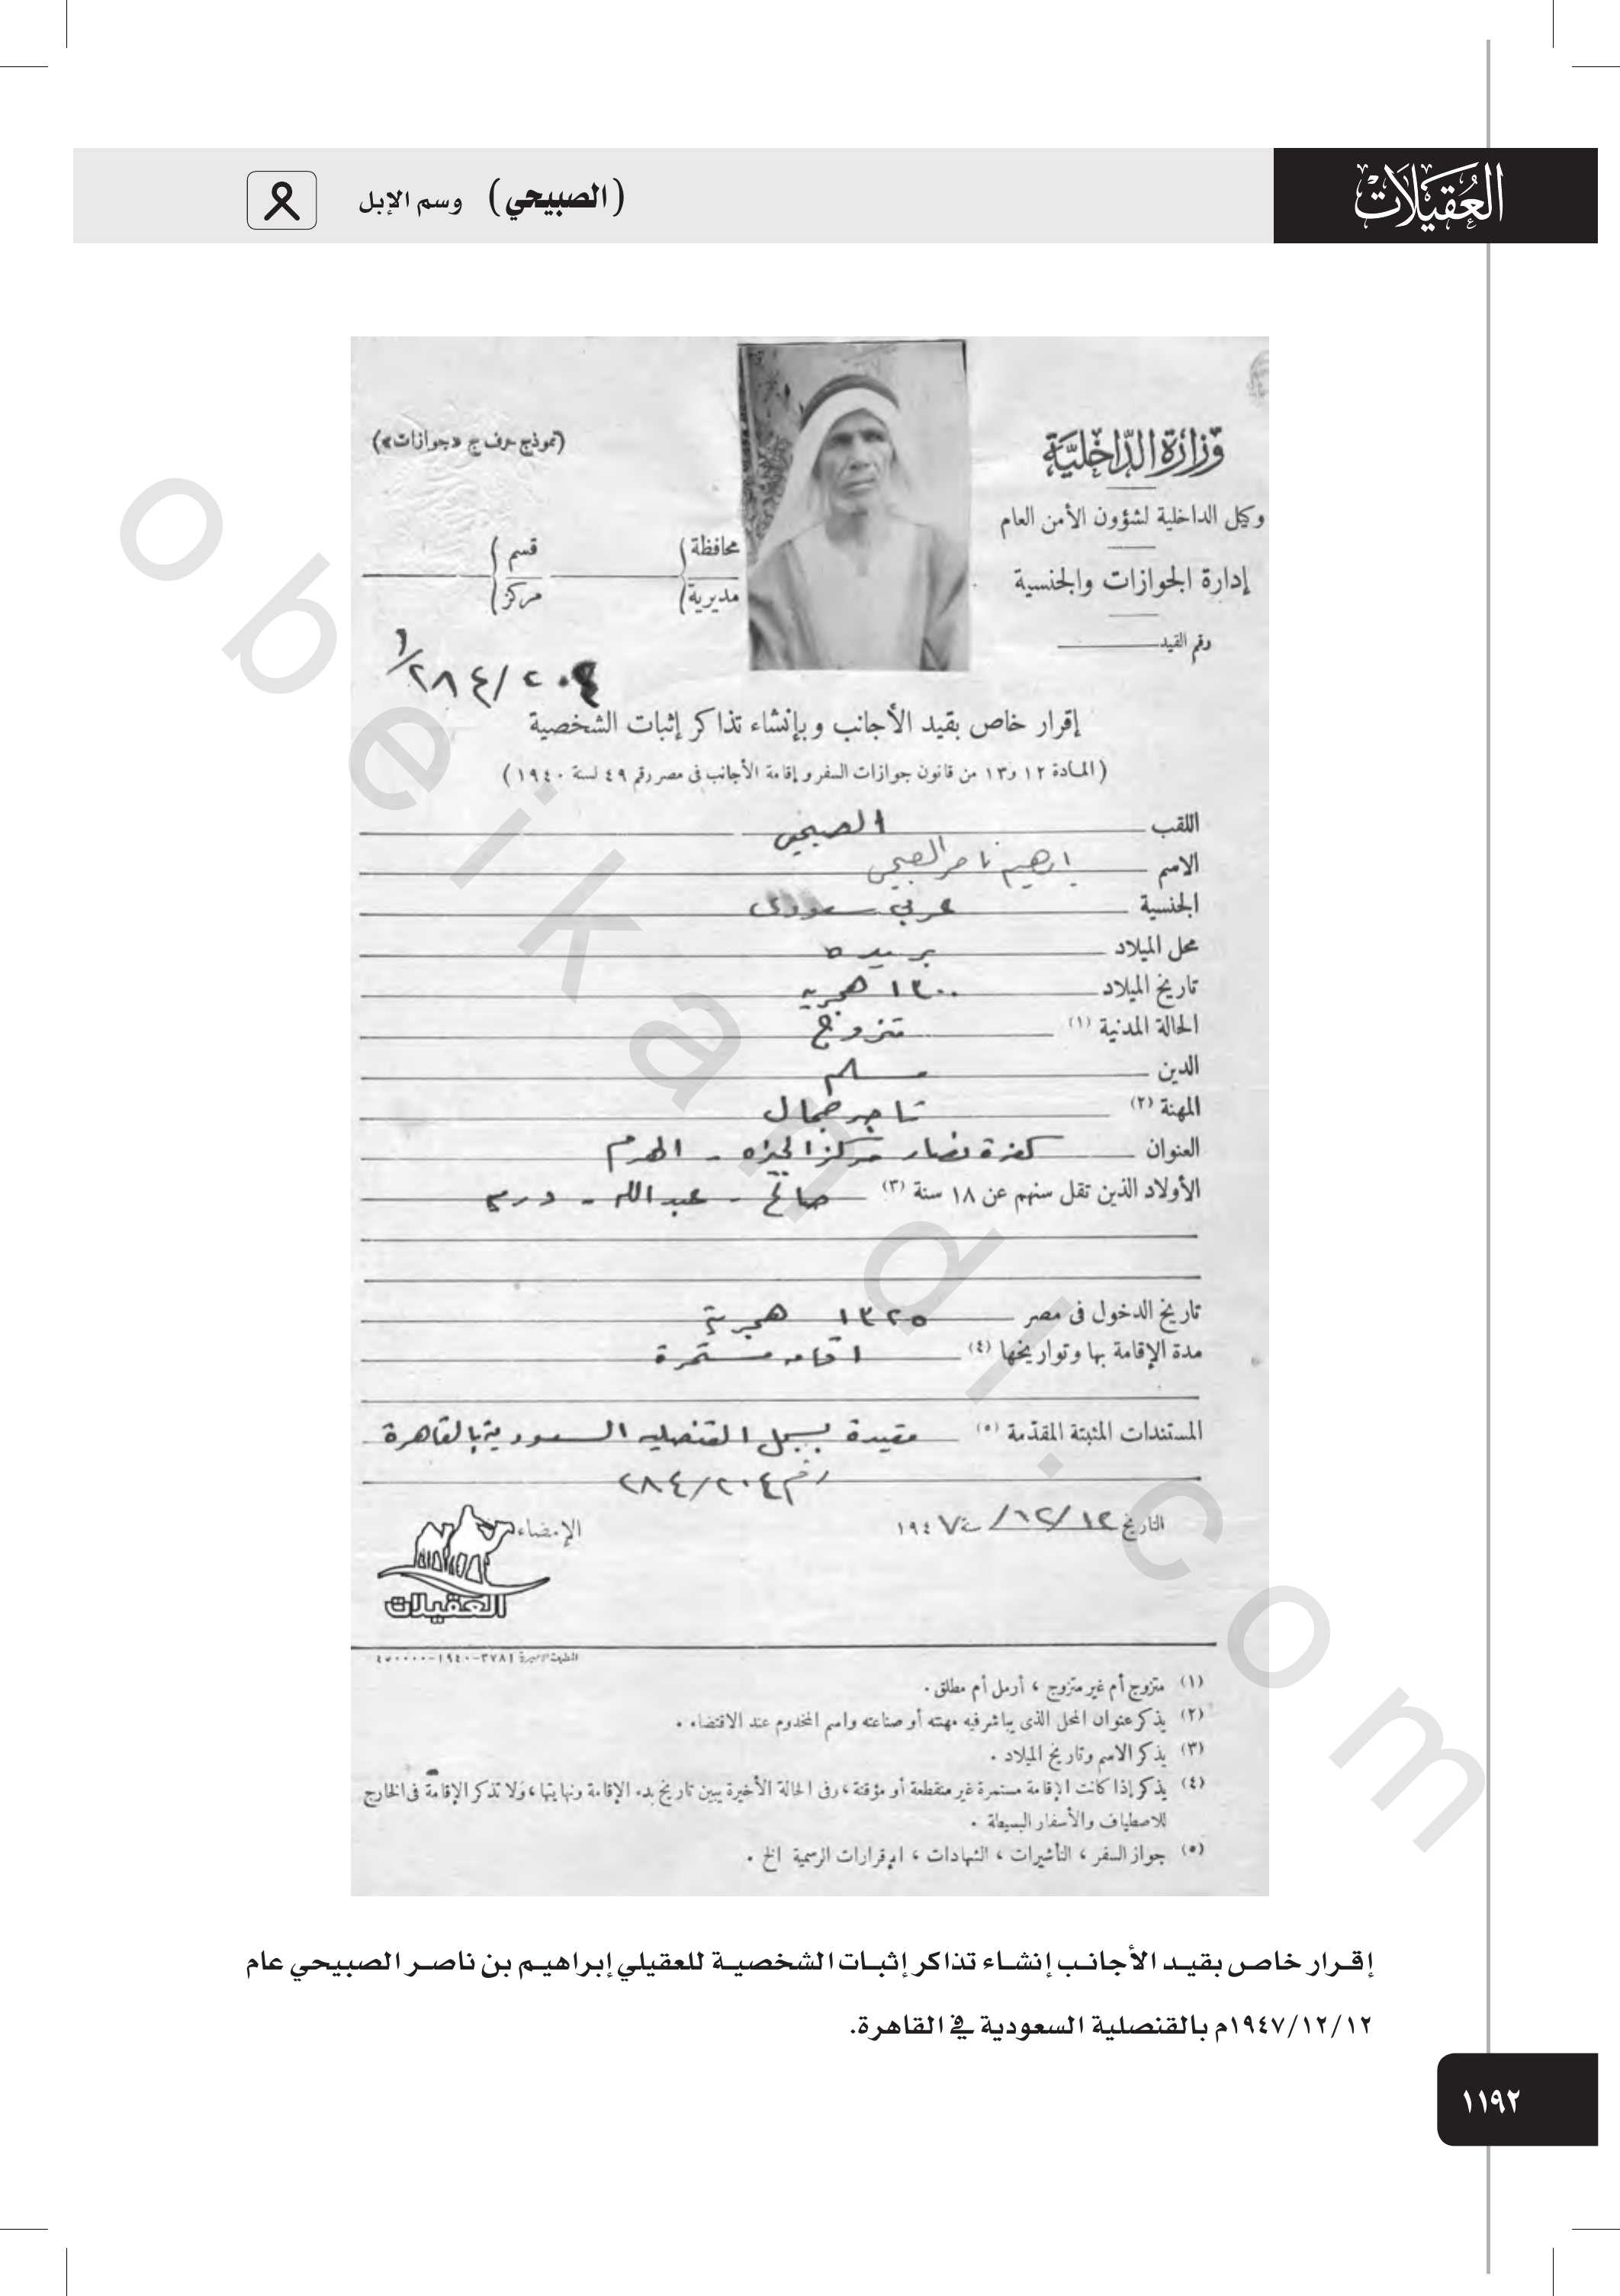 العُقَيلَات
(الصبيحي) وسم الإبل
(نموذج حرف ج «جوازات»)
وَزَارَةُ الدَّاخِليَّة
وكيل الداخلية لشؤون الأمن العام
إدارة الجوازات والجنسية
رقم القيد
محافظة
مديرية
قسم
مركز
٢٨٤/٢٠٤
إقرار خاص بقيد الأجانب وبإنشاء تذاكر إثبات الشخصية
(المادة ١٢ و١٣ من قانون جوازات السفر وإقامة الأجانب فى مصر رقم ٤٩ لسنة ١٩٤٠)
اللقب الصبيحي
الاسم ابراهيم ناصر الصبيحي
الجنسية عربي سعودى
محل الميلاد بريده
تاريخ الميلاد ١٣٠٠ هجريه
الحالة المدنية (١) متزوج
الدين مسلم
المهنة (٢) تاجر جمال
العنوان كفرة نصار مركز الجيزه - الهرم
الأولاد الذين تقل سنهم عن ١٨ سنة (٣) صالح - عبدالله -
تاريخ الدخول فى مصر ١٣٢٥ هجرية
مدة الإقامة بها وتواريخها (٤) اقامه مستمرة
المستندات المثبتة المقدّمة (٥) مقيدة بسجل القنصليه السعودية بالقاهرة
رقم ٢٨٤/٢٠٤
التاريخ ١٢/١٢/ سنة ١٩٤٧
الإمضاء
العقيلات
المطبعة الاميرية ٣٧٨١-١٩٤٠-٤٥٠٠٠٠
(١) متزوج أم غير متزوج ، أرمل أم مطلق .
(٢) يذكر عنوان المحل الذى يباشر فيه مهنته أو صناعته واسم المخدوم عند الاقتضاء .
(٣) يذكر الاسم وتاريخ الميلاد .
(٤) يذكر إذا كانت الإقامة مستمرة غير منقطعة أو مؤقتة ، وفى الحالة الأخيرة يبين تاريخ بدء الإقامة ونهايتها ، ولا تذكر الإقامة فى الخارج
للاصطياف والأسفار البسيطة .
(٥) جواز السفر ، التأشيرات ، الشهادات ، الإقرارات الرسمية الخ .
إقرار خاص بقيد الأجانب إنشاء تذاكر إثبات الشخصية للعقيلي إبراهيم بن ناصر الصبيحي عام
١٩٤٧/١٢/١٢م بالقنصلية السعودية في القاهرة.
١١٩٢
obeikandi.com